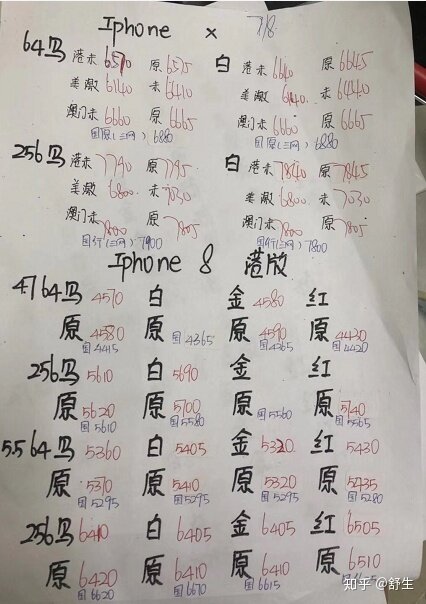 Iphone X 7/8
64鸟 港未 6570 原 6575 白 港未 6640 原 6645
美激 6140 未 6410 美激 6140 未 6440
澳门未 6660 原 6665 澳门未 6660 原 6665
国原(三网) 6880 国原(三网) 6880
256鸟 港未 7790 原 7795 白 港未 7840 原 7845
美激 6800 未 7030 美激 6800 未 7030
澳门未 7800 原 7805 澳门未 7800 原 7805
国行(三网) 7900 国行(三网) 7800
Iphone 8 港版
4.7 64鸟 4570 白 金 4580 红
原 4580 原 原 4590 原 4430
国4415 国4365 国4365 国4420
256鸟 5610 白 5690 金 红
原 5620 原 5700 原 原 5740
国5610 国5580 国5560 国5565
5.5 64鸟 5360 白 5405 金 5320 红 5430
原 5370 原 5410 原 5320 原 5435
国5295 国5295 国5295 国5280
256鸟 6410 白 6405 金 6405 红 6505
原 6420 原 6410 原 6410 原 6510
国6620 国6670 国6615
知乎 @舒生